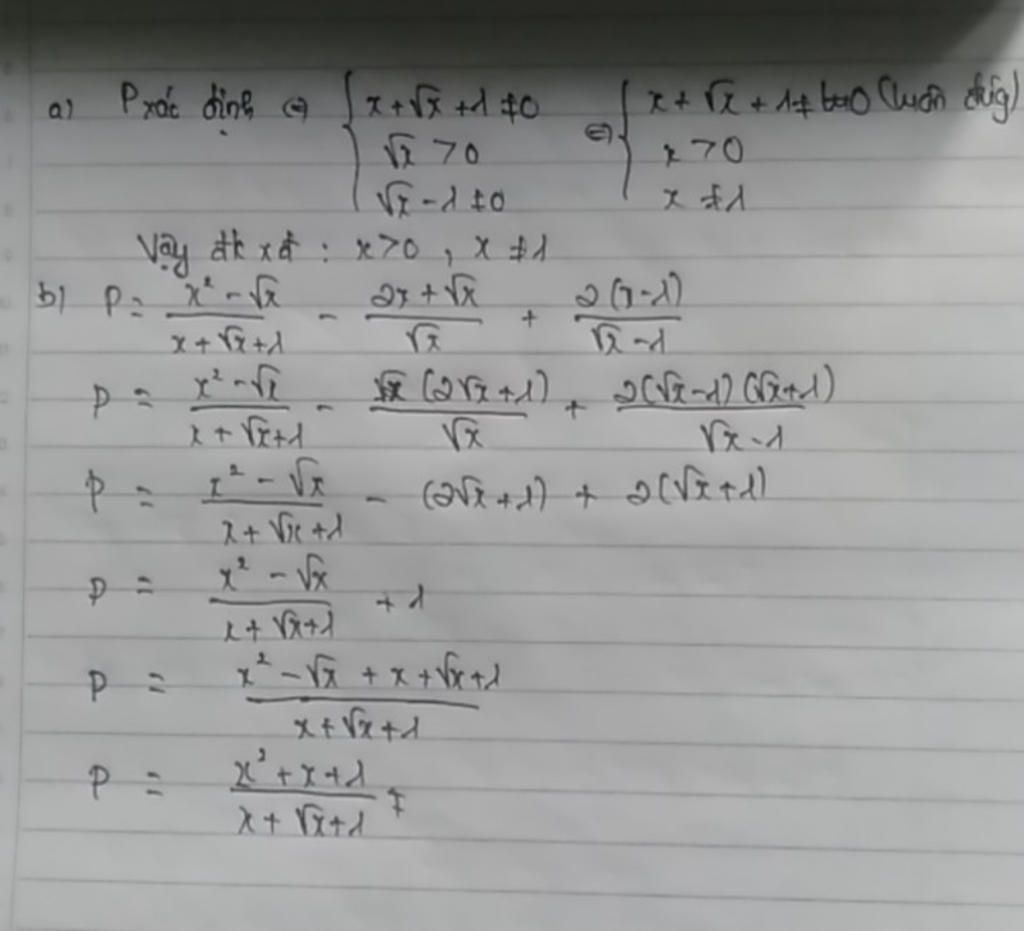 a) P xác định ⇔ { x + √x + 1 ≠ 0 ⇔ { x + √x + 1 ≠ 0 (luôn đúg)
√x > 0 x > 0
√x - 1 ≠ 0 x ≠ 1
Vậy đk xđ : x > 0 , x ≠ 1
b) P = (x² - √x)/(x + √x + 1) - (2x + √x)/√x + 2(x - 1)/(√x - 1)
P = (x² - √x)/(x + √x + 1) - √x(2√x + 1)/√x + 2(√x - 1)(√x + 1)/(√x - 1)
P = (x² - √x)/(x + √x + 1) - (2√x + 1) + 2(√x + 1)
P = (x² - √x)/(x + √x + 1) + 1
P = (x² - √x + x + √x + 1)/(x + √x + 1)
P = (x² + x + 1)/(x + √x + 1)